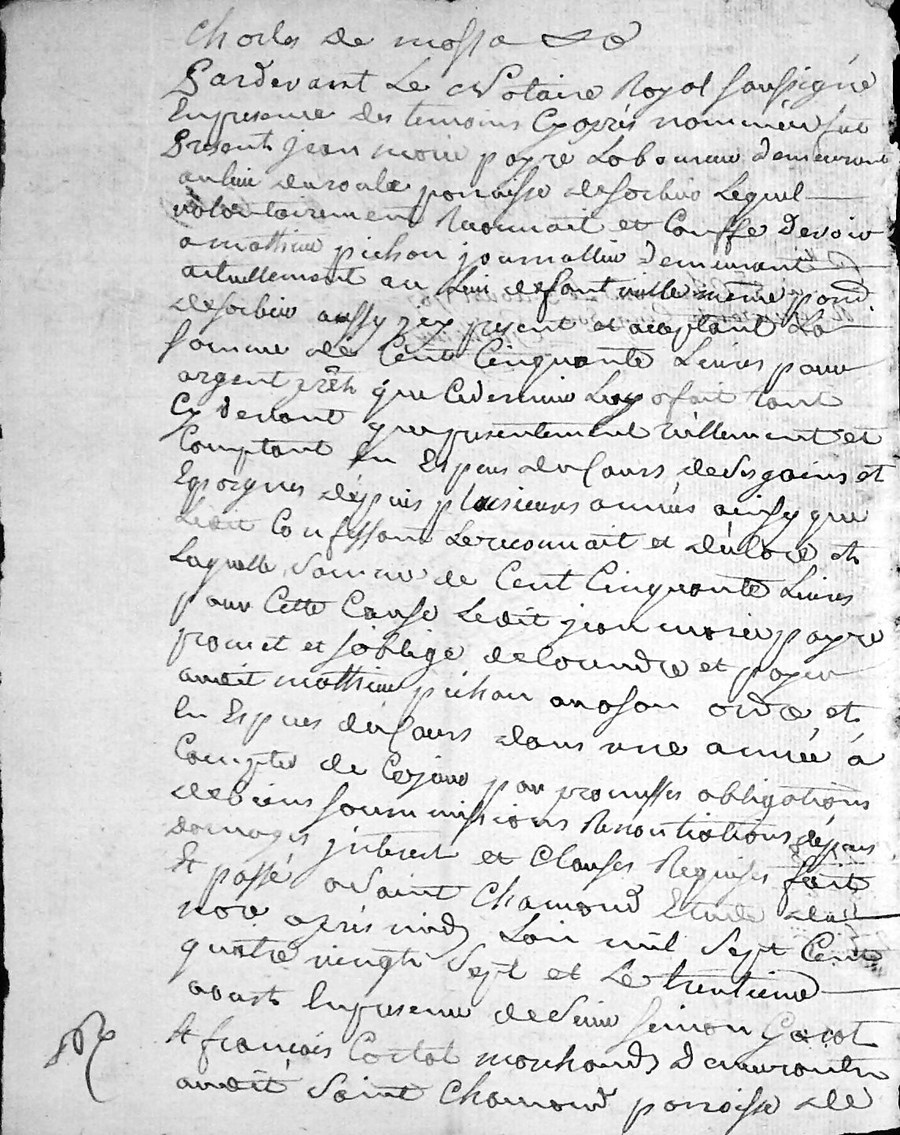 Charles de mossa &
Pardevant Le Notaire Royal soussigné
En presence des temoins Cy après nommés fut
Present jean marie payre Laboureur demeurant
au lieu paroisse de sorbier Lequel
volontairement Reconnait et Confesse devoir
a mathieu pichon journallier demeurant
actuellement au Lieu de même paroi
de sorbier aussy icy present et acceptant La
somme de Cent Cinquante Livres pour
argent prêté que Ce dernier Luy a fait tant
Cy devant que presentement réellement et
Comptant En Especes du Cours de ses gains et
Epargnes dépuis plusieurs années ainsy que
Ledit Confessant Le reconnait et déclare et
Laquelle somme de Cent Cinquante Livres
pour Cette Cause Ledit jean marie payre
promet et s'oblige de et payer
audit mathieu pichon ou a son ordre et
En Especes du Cours dans une année à
Compter de Ce jour par promesses obligations
de biens soummissions Renontiations dépens
domages jnterest et Clauses Requises fait
Et passé a Saint Chamond Etude du
nore après midy L'an mil Sept Cent
quatre vingt Sept et Le trentieme
aoust En presence de Sieur Simon
& françois marchands demeurants
audit Saint Chamond paroisse de